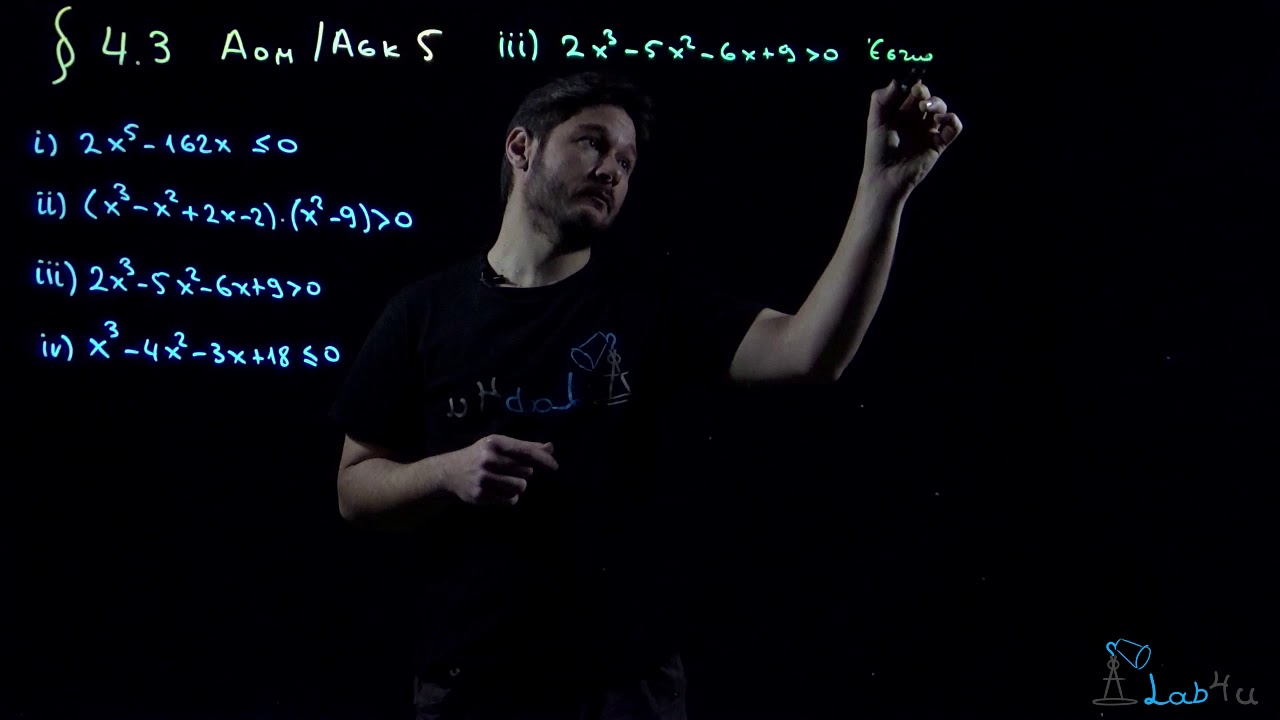 § 4.3 Λ0Μ / Λ6Κ 5
iii) 2x³-5x²-6x+9>0 Έστω
i) 2x⁵-162x ≤0
ii) (x³-x²+2x-2)·(x²-9)>0
iii) 2x³-5x²-6x+9>0
iv) x³-4x²-3x+18≤0
Lab4u
Lab4u